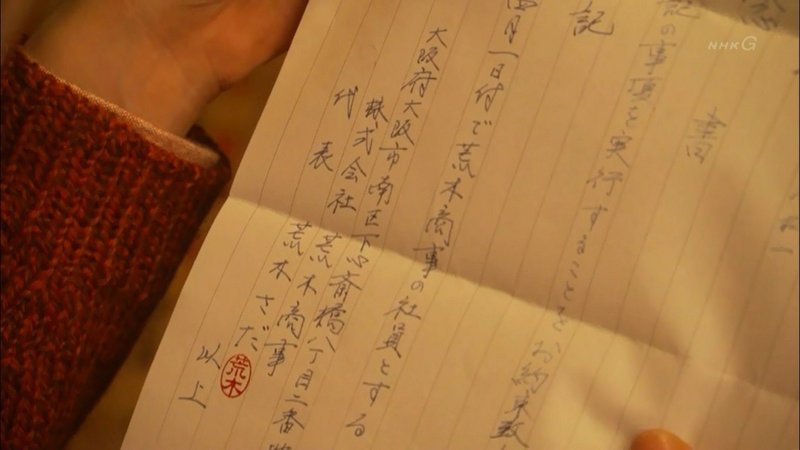 NHK G
書
記の事項を実行することをお約束致し
記
四月一日付で荒木商事の社員とする
大阪府大阪市南区下心斎橋八丁目二番
株式会社 荒木商事
代表 荒木さだ
荒木
以上